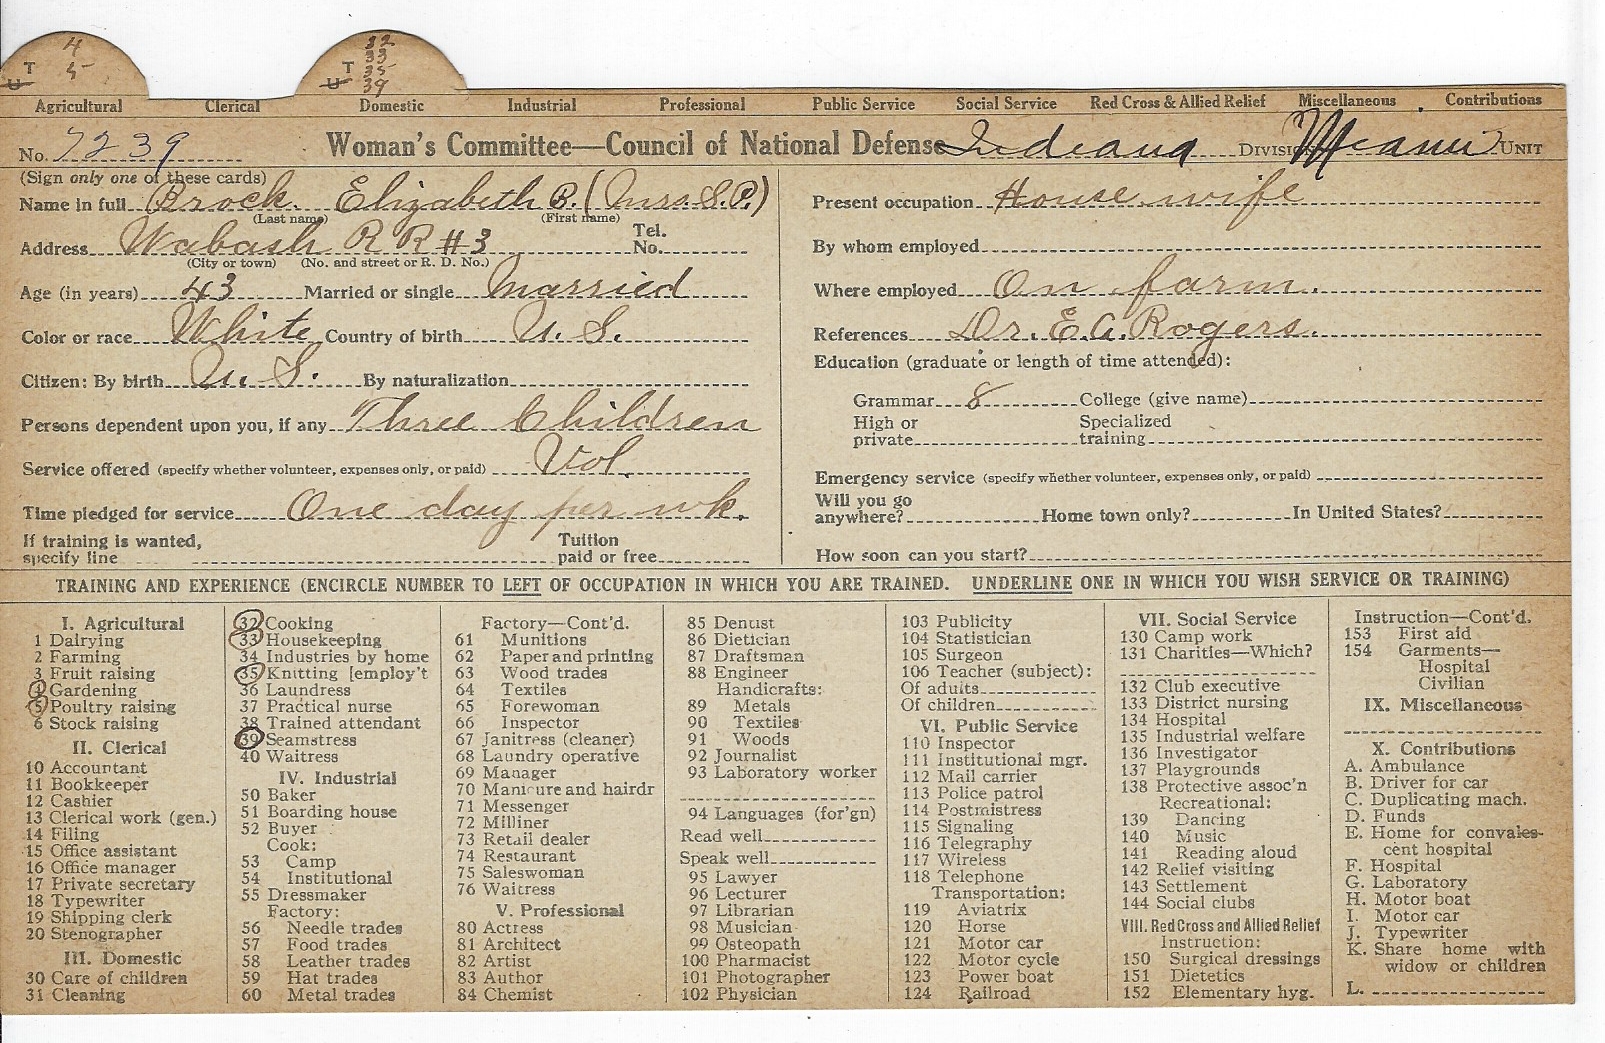 4
5
T
U
32
33
35
39
T
U
Agricultural Clerical Domestic Industrial Professional Public Service Social Service Red Cross & Allied Relief Miscellaneous Contributions
No. 7239 Woman's Committee—Council of National Defense Indiana Division Miami Unit
(Sign only one of these cards)
Name in full Brock Elizabeth B. (Mrs. S.P.)
(Last name) (First name)
Address Wabash R R #3 Tel. No.
(City or town) (No. and street or R. D. No.)
Age (in years) 43 Married or single Married
Color or race White Country of birth U. S.
Citizen: By birth U. S. By naturalization
Persons dependent upon you, if any Three Children
Service offered (specify whether volunteer, expenses only, or paid) Vol.
Time pledged for service One day per wk.
If training is wanted,
specify line
Tuition
paid or free
Present occupation House wife
By whom employed
Where employed On farm.
References Dr. E.A. Rogers.
Education (graduate or length of time attended):
Grammar 8 College (give name)
High or
private
Specialized
training
Emergency service (specify whether volunteer, expenses only, or paid)
Will you go
anywhere? Home town only? In United States?
How soon can you start?
TRAINING AND EXPERIENCE (ENCIRCLE NUMBER TO LEFT OF OCCUPATION IN WHICH YOU ARE TRAINED. UNDERLINE ONE IN WHICH YOU WISH SERVICE OR TRAINING)
I. Agricultural
1 Dairying
2 Farming
3 Fruit raising
4 Gardening
5 Poultry raising
6 Stock raising
II. Clerical
10 Accountant
11 Bookkeeper
12 Cashier
13 Clerical work (gen.)
14 Filing
15 Office assistant
16 Office manager
17 Private secretary
18 Typewriter
19 Shipping clerk
20 Stenographer
III. Domestic
30 Care of children
31 Cleaning
32 Cooking
33 Housekeeping
34 Industries by home
35 Knitting [employ't
36 Laundress
37 Practical nurse
38 Trained attendant
39 Seamstress
40 Waitress
IV. Industrial
50 Baker
51 Boarding house
52 Buyer
Cook:
53 Camp
54 Institutional
55 Dressmaker
Factory:
56 Needle trades
57 Food trades
58 Leather trades
59 Hat trades
60 Metal trades
Factory—Cont'd.
61 Munitions
62 Paper and printing
63 Wood trades
64 Textiles
65 Forewoman
66 Inspector
67 Janitress (cleaner)
68 Laundry operative
69 Manager
70 Manicure and hairdr
71 Messenger
72 Milliner
73 Retail dealer
74 Restaurant
75 Saleswoman
76 Waitress
V. Professional
80 Actress
81 Architect
82 Artist
83 Author
84 Chemist
85 Dentist
86 Dietician
87 Draftsman
88 Engineer
Handicrafts:
89 Metals
90 Textiles
91 Woods
92 Journalist
93 Laboratory worker
94 Languages (for'gn)
Read well
Speak well
95 Lawyer
96 Lecturer
97 Librarian
98 Musician
99 Osteopath
100 Pharmacist
101 Photographer
102 Physician
103 Publicity
104 Statistician
105 Surgeon
106 Teacher (subject):
Of adults
Of children
VI. Public Service
110 Inspector
111 Institutional mgr.
112 Mail carrier
113 Police patrol
114 Postmistress
115 Signaling
116 Telegraphy
117 Wireless
118 Telephone
Transportation:
119 Aviatrix
120 Horse
121 Motor car
122 Motor cycle
123 Power boat
124 Railroad
VII. Social Service
130 Camp work
131 Charities—Which?
132 Club executive
133 District nursing
134 Hospital
135 Industrial welfare
136 Investigator
137 Playgrounds
138 Protective assoc'n
Recreational:
139 Dancing
140 Music
141 Reading aloud
142 Relief visiting
143 Settlement
144 Social clubs
VIII. Red Cross and Allied Relief
Instruction:
150 Surgical dressings
151 Dietetics
152 Elementary hyg.
Instruction—Cont'd.
153 First aid
154 Garments—
Hospital
Civilian
IX. Miscellaneous
X. Contributions
A. Ambulance
B. Driver for car
C. Duplicating mach.
D. Funds
E. Home for convales-
cent hospital
F. Hospital
G. Laboratory
H. Motor boat
I. Motor car
J. Typewriter
K. Share home with
widow or children
L.